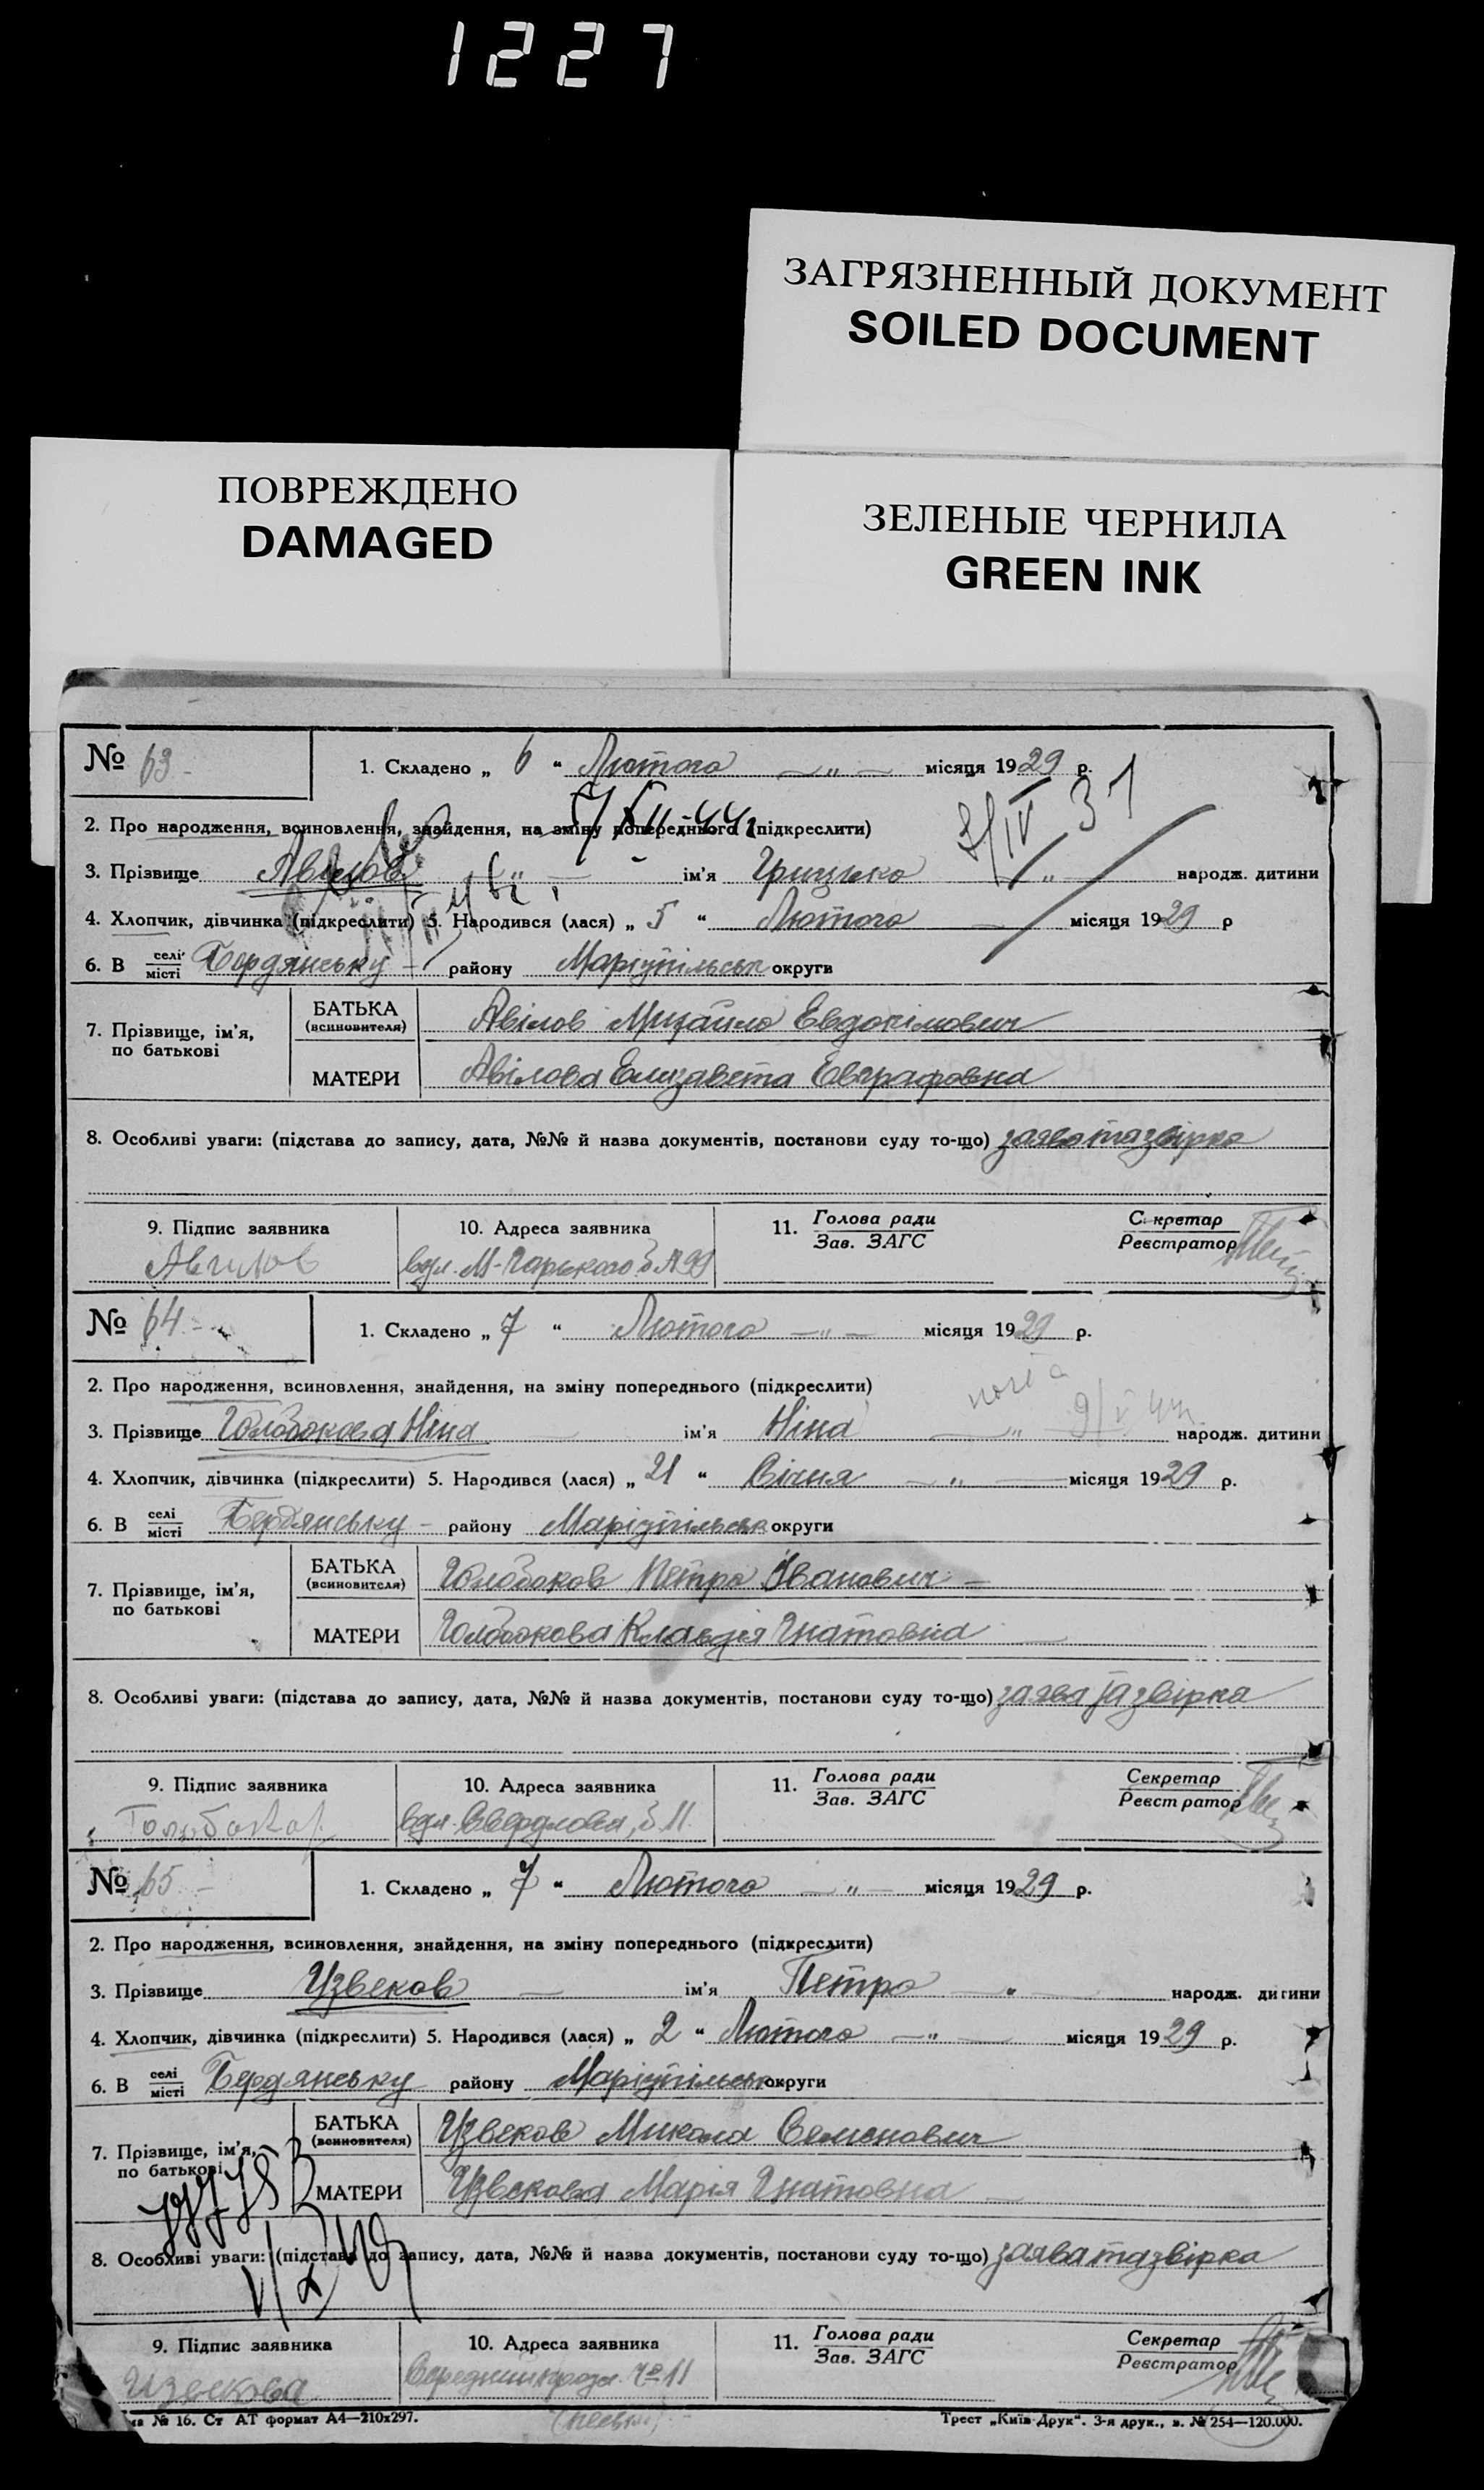 1227
ЗАГРЯЗНЕННЫЙ ДОКУМЕНТ
SOILED DOCUMENT
ПОВРЕЖДЕНО
DAMAGED
ЗЕЛЕНЫЕ ЧЕРНИЛА
GREEN INK
№ 63 -
1. Складено „ 6 “ Лютого — „ — місяця 1929 р.
2. Про народження, всиновлення, знайдення, на зміну попереднього (підкреслити)
3. Прізвище Авілов — „ — ім'я Грицько „ народж. дитини
4. Хлопчик, дівчинка (підкреслити) 5. Народився (лася) „ 5 “ Лютого — місяця 1929 р
6. В селі/місті Бердянську - району Маріупільськ округи
7. Прізвище, ім'я, по батькові
БАТЬКА (всиновителя) Авілов Михайло Евдокімович
МАТЕРИ Авілова Елизавета Евграфовна
8. Особливі уваги: (підстава до запису, дата, №№ й назва документів, постанови суду то-що) заява та звірка
9. Підпис заявника 10. Адреса заявника 11. Голова ради/Зав. ЗАГС Секретар/Реєстратор
Авилов вул. М-Горького № 99
№ 64 -
1. Складено „ 7 “ Лютого — „ — місяця 1929 р.
2. Про народження, всиновлення, знайдення, на зміну попереднього (підкреслити)
3. Прізвище Голобокова Ніна — ім'я Ніна — „ народж. дитини
4. Хлопчик, дівчинка (підкреслити) 5. Народився (лася) „ 21 “ Січня — „ — місяця 1929 р.
6. В селі/місті Бердянську - району Маріупільськ округи
7. Прізвище, ім'я, по батькові
БАТЬКА (всиновителя) Голобоков Петро Іванович —
МАТЕРИ Голобокова Клавдія Гнатовна —
8. Особливі уваги: (підстава до запису, дата, №№ й назва документів, постанови суду то-що) заява та звірка
9. Підпис заявника 10. Адреса заявника 11. Голова ради/Зав. ЗАГС Секретар/Реєстратор
вул. Свердлова, 11
№ 65 -
1. Складено „ 7 “ Лютого — „ — місяця 1929 р.
2. Про народження, всиновлення, знайдення, на зміну попереднього (підкреслити)
3. Прізвище Узвеков — ім'я Петро — „ — народж. дитини
4. Хлопчик, дівчинка (підкреслити) 5. Народився (лася) „ 2 “ Лютого — „ — місяця 1929 р.
6. В селі/місті Бердянську району Маріупільськ округи
7. Прізвище, ім'я, по батькові
БАТЬКА (всиновителя) Узвеков Микола Семенович
МАТЕРИ Узвекова Марія Гнатовна —
8. Особливі уваги: (підстава до запису, дата, №№ й назва документів, постанови суду то-що) заява та звірка
9. Підпис заявника 10. Адреса заявника 11. Голова ради/Зав. ЗАГС Секретар/Реєстратор
№ 11
№ 16. Ст АТ формат А4—210x297. Трест „Київ-Друк“. 3-я друк., з. № 254—120.000.